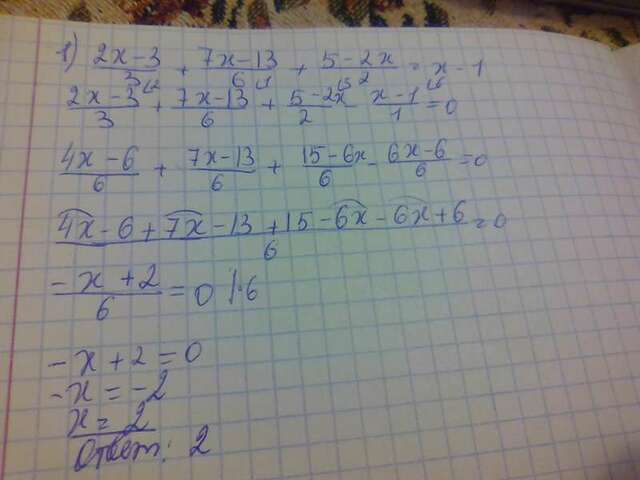 1) (2x-3)/3 + (7x-13)/6 + (5-2x)/2 = x-1
(2x-3)/3 + (7x-13)/6 + (5-2x)/2 - (x-1)/1 = 0
(4x-6)/6 + (7x-13)/6 + (15-6x)/6 - (6x-6)/6 = 0
(4x-6+7x-13+15-6x-6x+6)/6 = 0
(-x+2)/6 = 0 |·6
-x+2=0
-x=-2
x=2
Ответ: 2